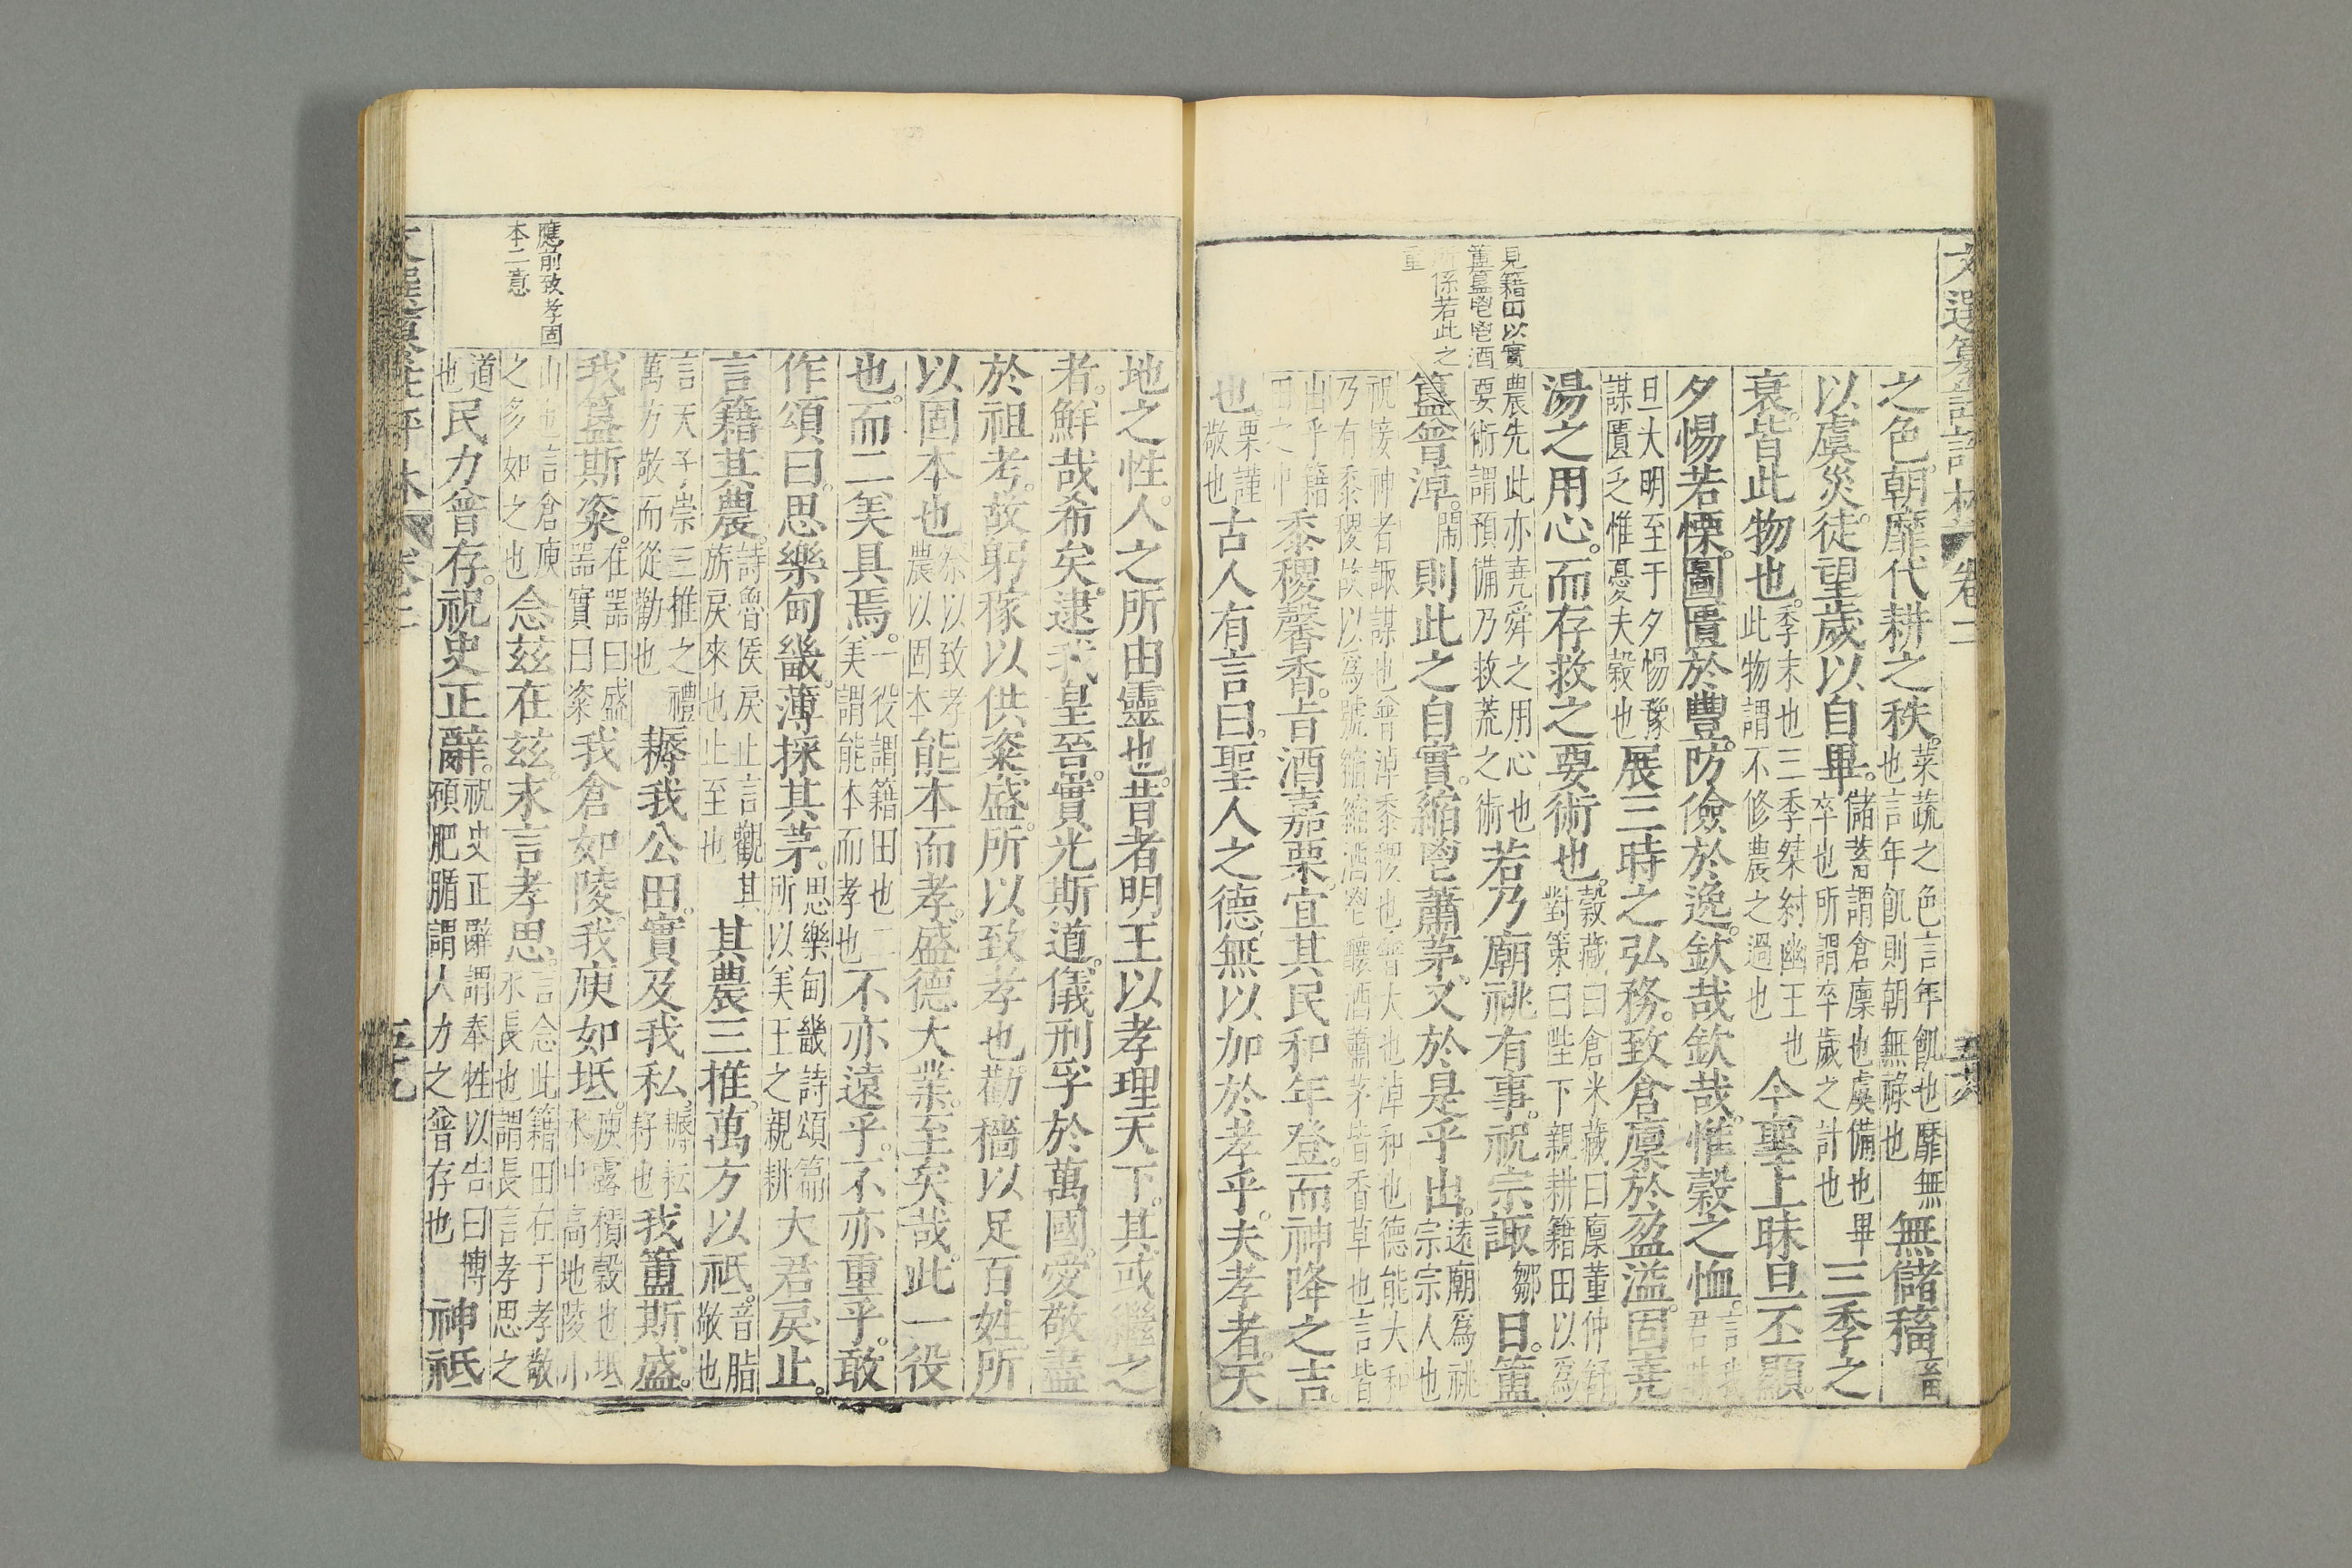 之色朝靡代耕之秩菜蔬之色言年飢也靡無也言年飢則朝無祿也無儲稸畜
以虞災徒望歲以自畢儲蓄謂倉廩也虞備也畢卒也所謂卒歲之計也三季之
衰皆此物也季末也三季桀紂幽王也此物謂不修農之過也今聖上昧旦丕顯
夕惕若慄圖匱於豐防儉於逸欽哉欽哉惟穀之恤言我君
旦大明至于夕惕豫謀匱乏惟憂夫穀也展三時之弘務致倉廩於盈溢固堯
湯之用心而存救之要術也穀藏曰倉米藏曰廩董仲舒對策曰陛下親耕籍田以爲
農先此亦堯舜之用心也要術謂預備乃救荒之術若乃廟祧有事祝宗諏鄒日簠
簋普淖鬧則此之自實縮鬯蕭茅又於是乎出遠廟爲祧宗宗人也
祝接神者諏謀也普淖黍稷也普大也淖和也德能大和乃有黍稷故以爲號縮縮酒鬯釀酒蕭茅皆香草也言皆
出乎籍田之中黍稷馨香旨酒嘉栗宜其民和年登而神降之吉
也栗謹敬也古人有言曰聖人之德無以加於孝乎夫孝者天
見籍田以實
簠簋鬯鬯酒
所係若此之
重
文選纂註評林
卷二
地之性人之所由靈也昔者明王以孝理天下其或繼之
者鮮哉希矣逮我皇晉實光斯道儀刑孚於萬國愛敬盡
於祖考故躬稼以供粢盛所以致孝也勸穡以足百姓所
以固本也祭以致孝農以固本能本而孝盛德大業至矣哉此一役
也而二美具焉一役謂籍田也二美謂能本而孝也不亦遠乎不亦重乎敢
作頌曰思樂甸畿薄採其茅思樂甸畿詩頌篇所以美王之親耕大君戾止
言籍其農詩魯侯戾止言觀其旂戾來也止至也其農三推萬方以祇音脂敬也
言天子崇三推之禮萬方敬而從勸也耨我公田實及我私耨耘耔也我簠斯盛
我簋斯粢在器曰盛器實曰粢我倉如陵我庾如坻庾露積穀也坻水中高地陵小
山也言倉庾之多如之也念茲在茲永言孝思言念此籍田在于孝敬永長也謂長言孝思之
道也民力普存祝史正辭祝史正辭謂奉牲以告曰博碩肥腯謂人力之普存也神祇
應前致孝固
本二意